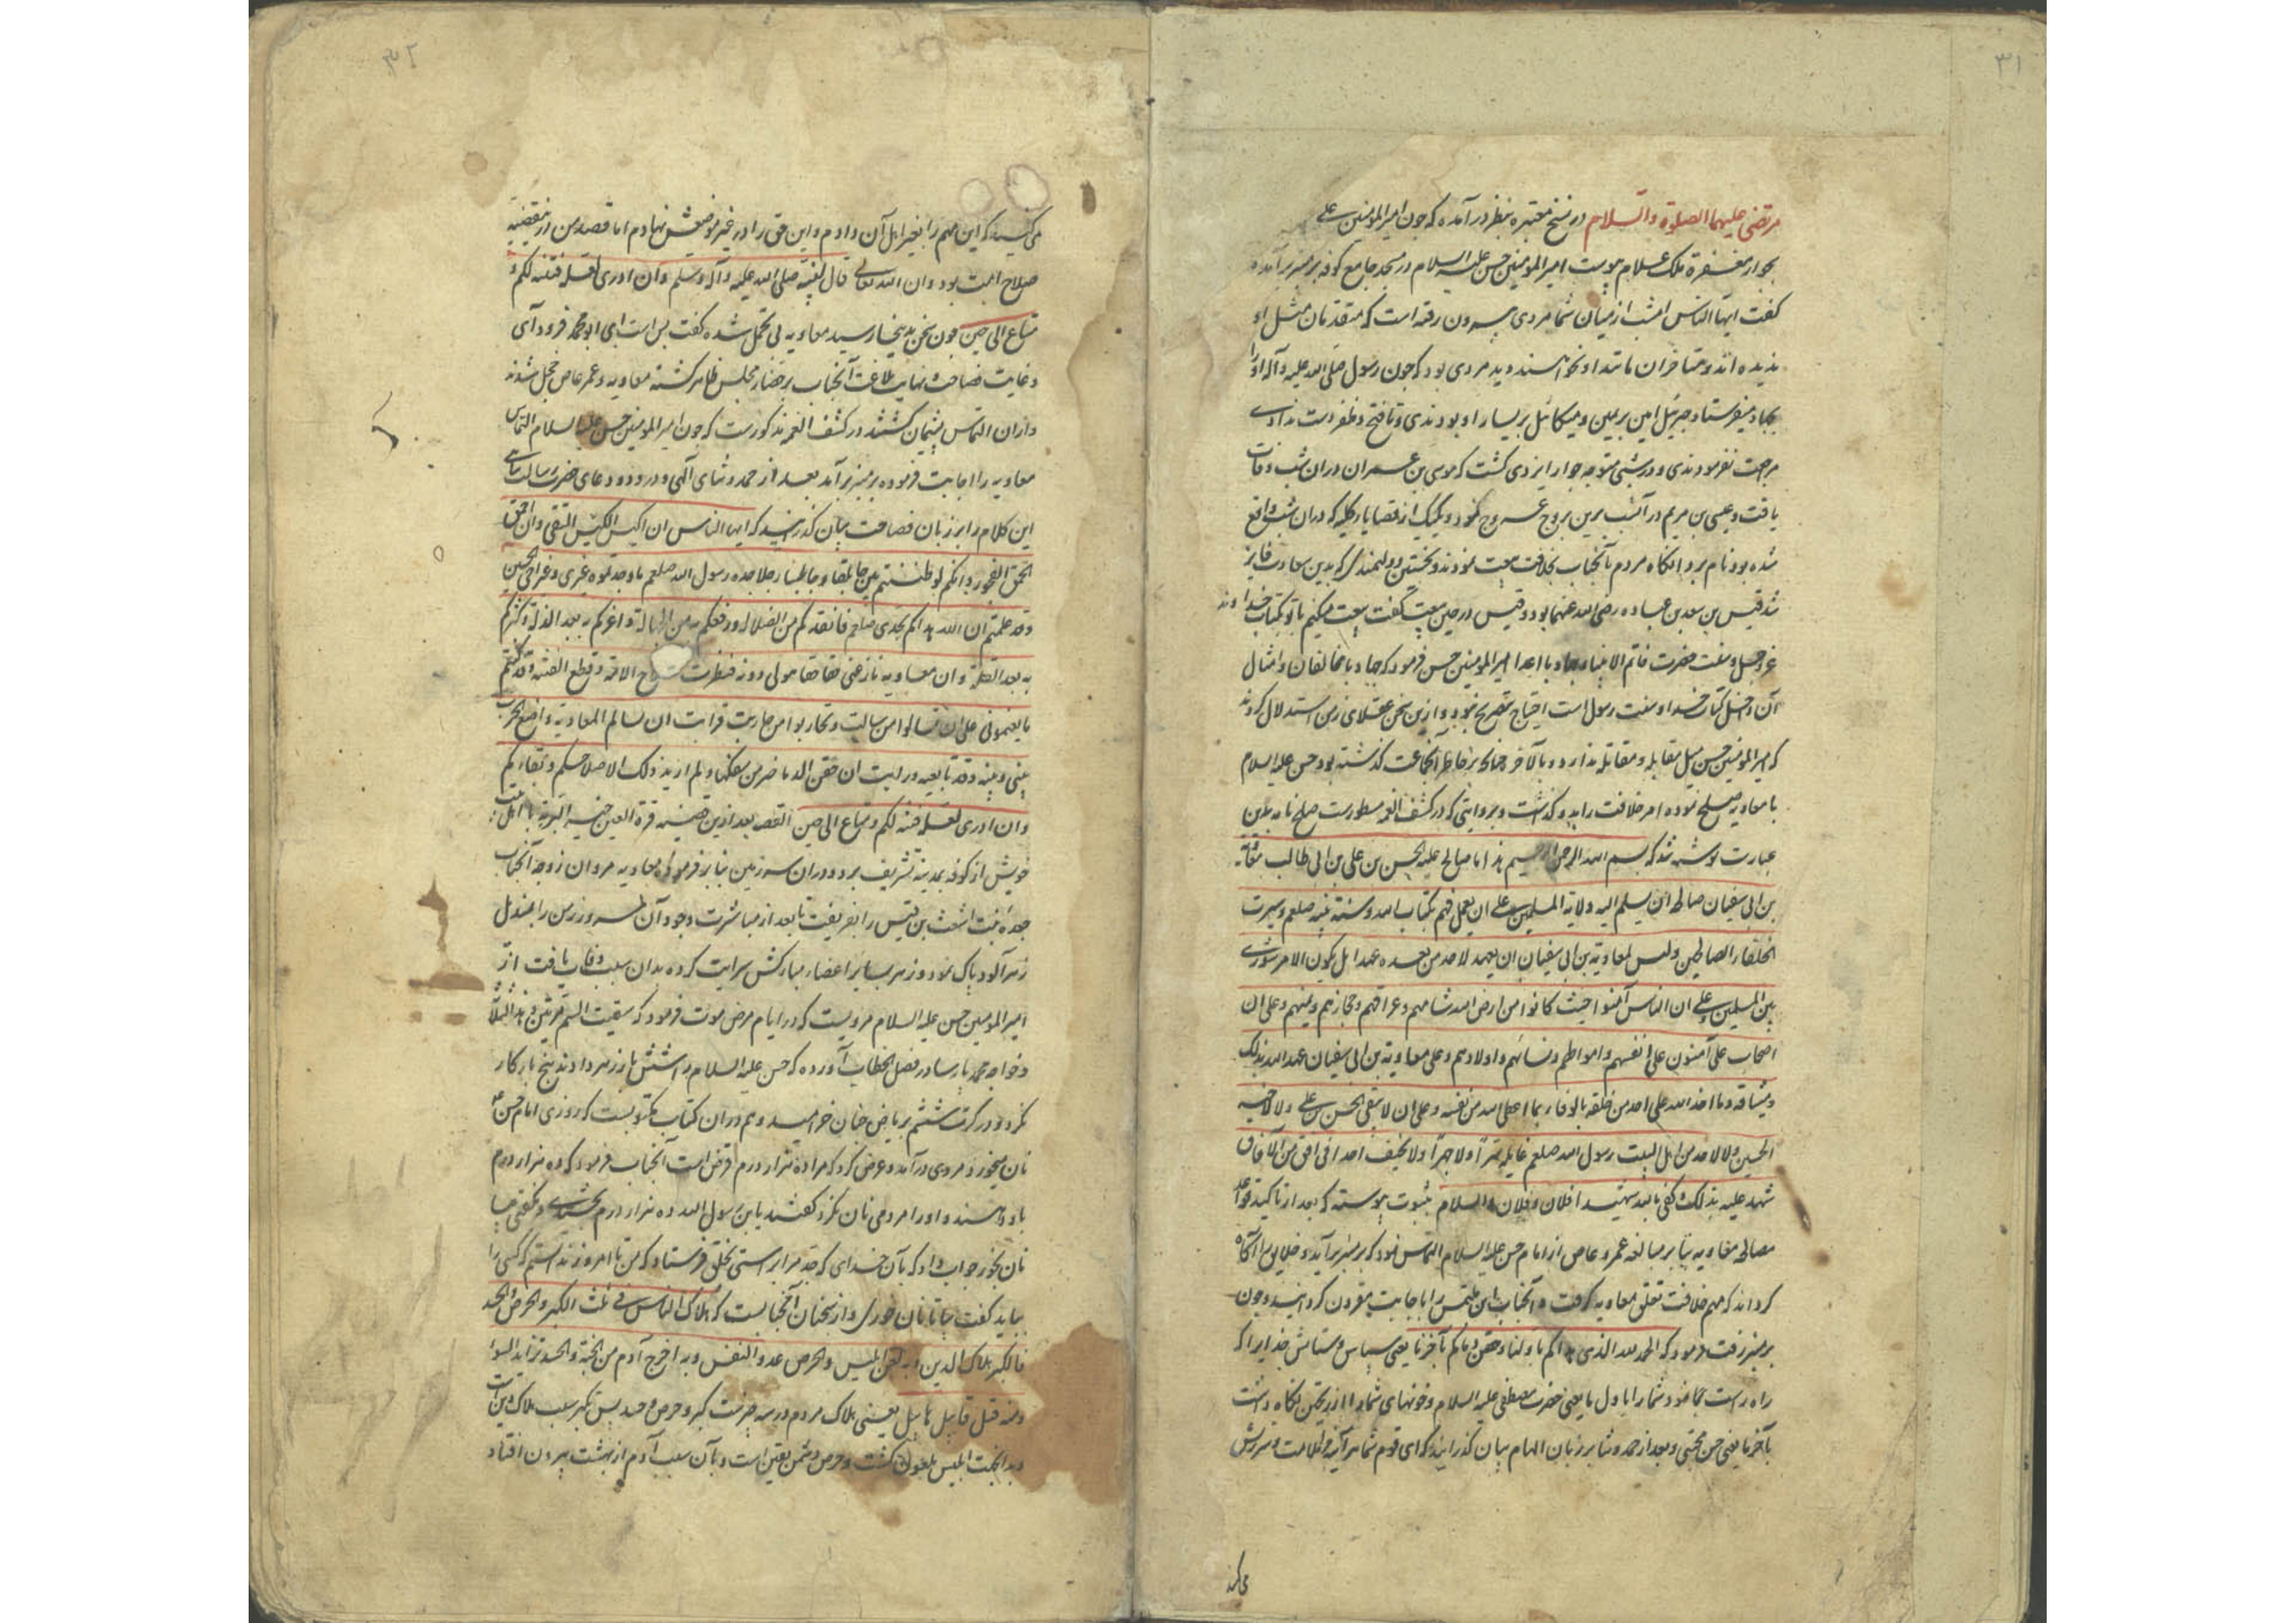 ۳۱
مرتضی علیهما الصلوة والسلام در نسخ معتبره بنظر در آمده که چون امیرالمؤمنین علی
بجوار مغفرة ملک علام پیوست امیرالمؤمنین حسن علیه السلام در مسجد جامع کوفه بر منبر برآمد و
کفت ایها الناس امشب از میان شما مردی بیرون رفته است که متقدمان مثل او
ندیده اند و متاخران مانند او نخواهند دید مردی بود که چون رسول صلی الله علیه وآله او را
بجهاد میفرستاد جبرئیل امین بر یمین و میکائیل بر یسار او بودندی و تا فتح و ظفر دست ندادی
مراجعت نفرمودندی و در شبی متوجه جوار ایزدی کشت که موسی بن عمران دران شب وفات
یافت و عیسی بن مریم در آنشب برین بروج عروج نمود و یکیک از قضایاء کلیه که دران شب واقع
شده بود نام برد آنکاه مردم با آنجناب بخلافت بیعت نمودند و نخستین دولتمندی که بدین سعادت فایز
شد قیس بن سعد بن عباده رضی الله عنهما بود و قیس در حین بیعت گفت بیعت میکنم با تو بکتاب خداوند
عز وجل و سنت حضرت خاتم الانبیاء و جهاد با اعدا امیرالمؤمنین حسن فرمود که جهاد با مخالفان و امثال
آن داخل کتاب خدا و سنت رسول است احتیاج بتصریح نبود و ازین سخن عقلای زمن استدلال کردند
که امیرالمؤمنین حسن میل مقابله و مقاتله ندارد و بالآخر چنانچه بر خاطر آنجماعت کذشته بود حسن علیه السلام
با معاویه صلح نموده امر خلافت را بدو کذاشت و بروایتی که در کشف الغمه مسطورست صلح نامه بدین
عبارت نوشته شد که بسم الله الرحمن الرحیم هذا ما صالح علیه الحسن بن علی بن ابی طالب معاویة
بن ابی سفیان صالحه ان یسلم الیه ولایة المسلمین علی ان یعمل فیهم بکتاب الله و سنة نبیه صلعم و سیرت
الخلفاء الصالحین ولیس لمعاویة بن ابی سفیان ان یعهد لاحد من بعده عهدا بل یکون الامر شوری
بین المسلمین و علی ان الناس آمنوا حیث کانوا من ارض الله شامهم و عراقهم و حجازهم و یمنهم و علی ان
اصحاب علی آمنون علی انفسهم و اموالهم و نسائهم و اولادهم و علی معاویة بن ابی سفیان عهد الله بذلک
و میثاقه و ما اخذ الله علی احد من خلقه بالوفاء بما اعطی الله من نفسه و علی ان لا یبغی للحسن بن علی ولا لاخیه
الحسین ولا لاحد من اهل البیت رسول الله صلعم غایلة سرّا ولا جهرا ولا یخیف احدا فی افق من الآفاق
شهد علیه بذلک و کفی بالله شهیدا فلان و فلان والسلام بثبوت پیوسته که بعد از تاکید قواعد
مصالحه معاویه بنا بر مبالغه عمرو عاص از امام حسن علیه السلام التماس نمود که بر منبر برآید و خلایق را آکاه
کرداند که مهم خلافت تعلق بمعاویه کرفت و آنجناب این ملتمس را باجابت مقرون کردانید و چون
بر منبر رفت فرمود که الحمد لله الذی هداکم باولنا و حقن دمائکم بآخرنا یعنی سپاس و ستایش خدایرا که
راه راست بنمود شما را باول ما یعنی حضرت مصطفی علیه السلام و خونهای شما را از ریختن نکاه داشت
بآخر ما یعنی حسن مجتبی و بعد از حمد و ثنا بر زبان الهام بیان کذرانید که ای قوم شما هر آینه مرا ملامت و سرزنش
می کنید
۳۲
می کنید که این مهم را بغیر اهل آن دادم و این حق را در غیر موضعش نهادم اما قصد من درین قضیه
صلاح امت بود و ان الله تعالی قال لنبیه صلی الله علیه وآله وسلم و ان ادری لعله فتنة لکم و
متاع الی حین چون سخن بدینجا رسید معاویه بی تحمل شده کفت بس است ای ابو محمد فرود آی
و غایت فصاحت و نهایت بلاغت آنجناب بر حضار مجلس ظاهر کشته معاویه و عمرعاص خجل شدند
و از ان التماس پشیمان کشتند در کشف الغمه مذکورست که چون امیرالمؤمنین حسن علیه السلام التماس
معاویه را اجابت فرموده بر منبر برآمد بعد از حمد و ثنای آلهی و درود و دعای حضرت رسالت پناهی
این کلام را بر زبان فصاحت بیان کذرانید که ایها الناس ان اکیس الکیس التقی وان احمق
الحمق الفجور وانکم لو طلبتم بین جابلقا و جابلسا رجلا جده رسول الله صلعم ما وجدتموه غیری و غیر اخی الحسین
وقد علمتم ان الله هداکم بجدی صلعم فانقذکم من الضلالة ورفعکم به من الجهالة و اعزکم به بعد الذلة و کثرکم
به بعد القلة و ان معاویه نازعنی حقا هو لی دونه فنظرت صلاح الامة و قطع الفتنة وقد کنتم
بایعتمونی علی ان تسالموا من سالمت و تحاربوا من حاربت فرایت ان اسالم المعاویه و اضع الحرب
بینی و بینه وقد بایعته ورایت ان حقن الدماء خیر من سفکها ولم ارد بذلک الا صلاحکم و بقاءکم
وان ادری لعله فتنة لکم ومتاع الی حین القصه بعد ازین قضیه قرة العین خیر البریه با اهل بیت
خویش از کوفه بمدینه تشریف برد و دران سرزمین بنا بر فرموده معاویه مروان زوجه آنجناب
جعده بنت اشعث بن قیس را بفریفت تا بعد از مباشرت وجود آن سرور زمن را بمندیل
زهرآلود پاک نمود و زهر بسایر اعضاء مبارکش سرایت کرده بدان سبب وفات یافت از
امیرالمؤمنین حسن علیه السلام مرویست که در ایام مرض موت فرمود که سقیت السم مرتین و هذا الثالثة
و خواجه محمد پارسا در فصل الخطاب آورده که حسن علیه السلام را شش بار زهر دادند پنج بار کار
نکرد و در کرت ششم بریاض جنان خرامید و هم دران کتاب مکتوبست که روزی امام حسن
نان میخورد مردی درآمد و عرض کرد که مرا ده هزار درم قرض است آنجناب فرمود که ده هزار درم
باو دادند و او را مردمی نان نکرد کفتند یابن رسول الله ده هزار درم بخشیدی و نکفتی بیا
نان بخور جواب داد که بآن خدای که جد مرا براستی بخلق فرستاد که من تا امروز ندانستم که کسی را
بباید کفت بیا تا نان خوری و از سخنان آنجنابست که هلاک الناس فی ثلث الکبر والحرص والحسد
فالکبر هلاک الدین وبه لعن ابلیس والحرص عدو النفس وبه اخرج آدم من الجنة والحسد رائد السوء
ومنه قتل قابیل هابیل یعنی هلاک مردم در سه چیزست کبر و حرص و حسد پس تکبر سبب هلاک دین است
و بدانجهت ابلیس ملعون کشت و حرص دشمن نفس است و بآن سبب آدم از بهشت بیرون افتاد